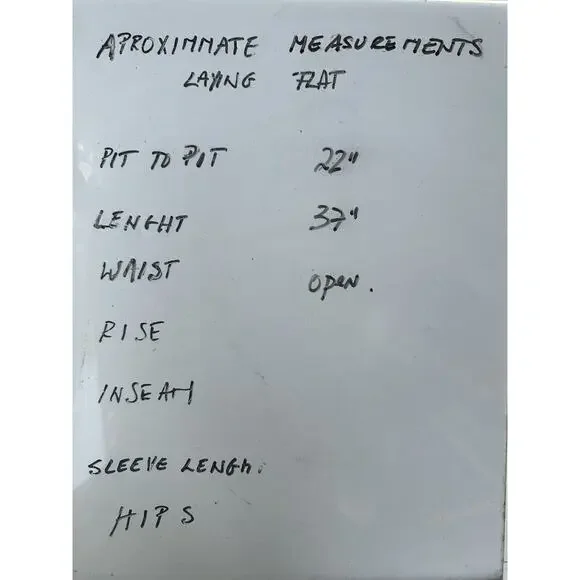 APROXIMMATE MEASUREMENTS
LAYING FLAT
PIT TO PIT 22"
LENGHT 37"
WAIST open.
RISE
INSEAM
SLEEVE LENGh.
HIPS